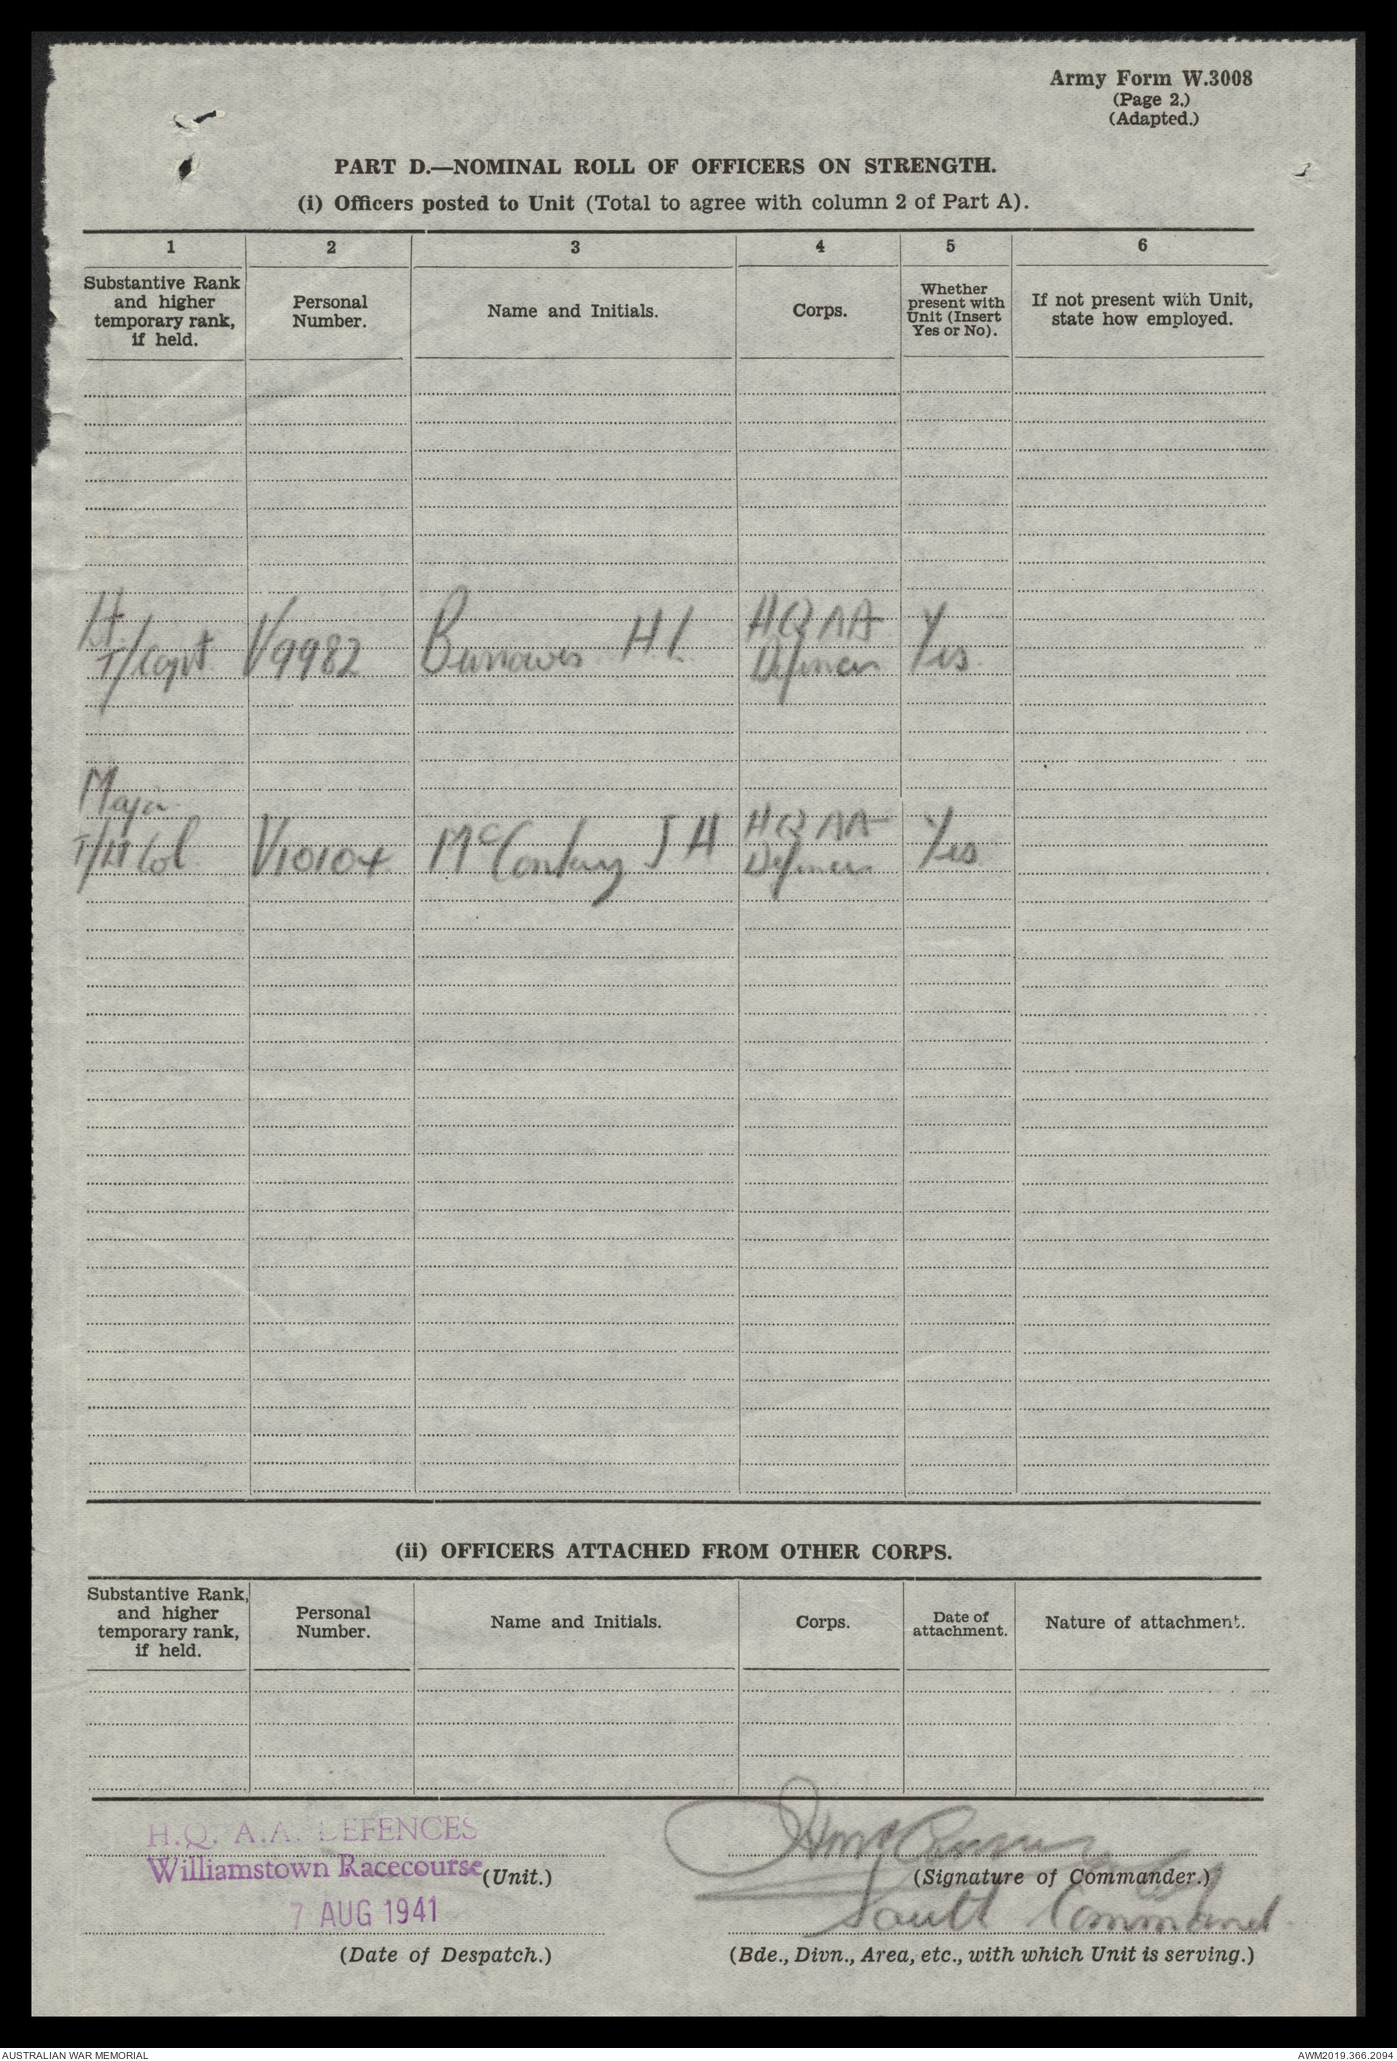 Army Form W.3008
(Page 2.)
(Adapted.)
PART D.—NOMINAL ROLL OF OFFICERS ON STRENGTH.
(i) Officers posted to Unit (Total to agree with column 2 of Part A).
1 2 3 4 5 6
Substantive Rank and higher temporary rank, if held. Personal Number. Name and Initials. Corps. Whether present with Unit (Insert Yes or No). If not present with Unit, state how employed.
Lt. HQ AA
T/Capt V9982 Burrowes H.L. Defences Yes
Major HQ AA
T/Lt Col V10104 McConkey J H Defences Yes
(ii) OFFICERS ATTACHED FROM OTHER CORPS.
Substantive Rank, and higher temporary rank, if held. Personal Number. Name and Initials. Corps. Date of attachment. Nature of attachment.
H.Q. A.A. DEFENCES
Williamstown Racecourse (Unit.)
(Signature of Commander.)
7 AUG 1941 South Command
(Date of Despatch.) (Bde., Divn., Area, etc., with which Unit is serving.)
AUSTRALIAN WAR MEMORIAL AWM2019.366.2094